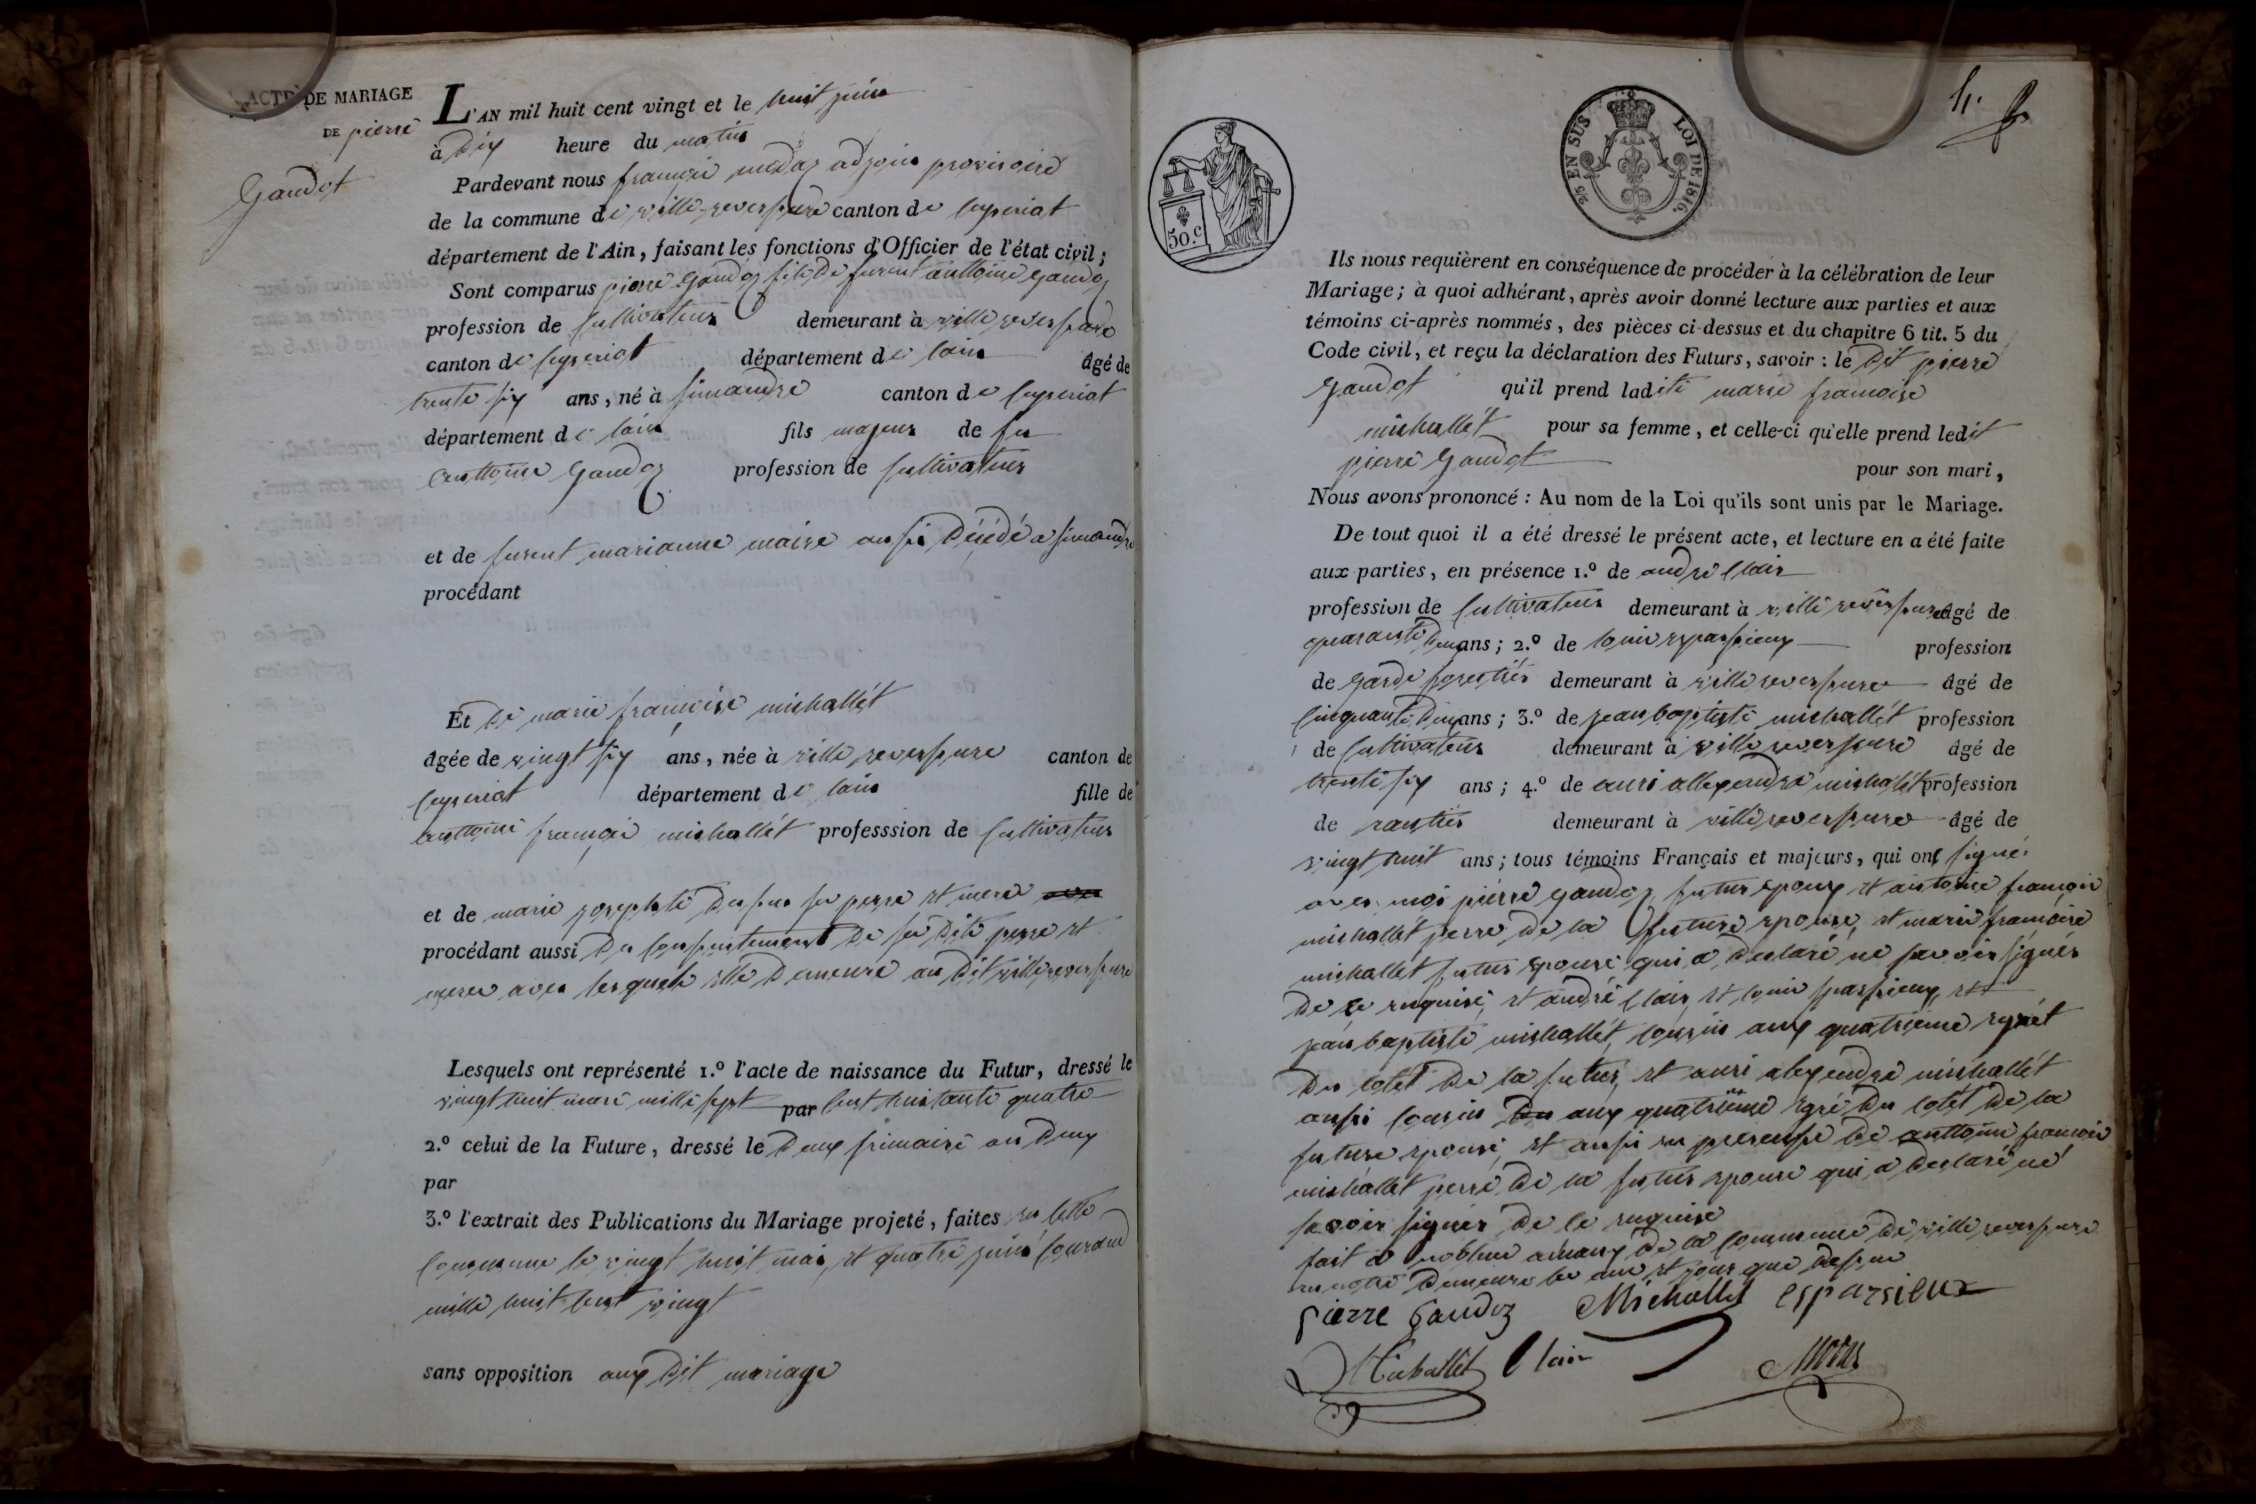 ACTE DE MARIAGE
DE pierre
Gaudot
L'AN mil huit cent vingt et le huit juin
à dix heure du matin
Pardevant nous françois adjoin provisoire
de la commune de ville-reversure canton de ceyseriat
département de l'Ain, faisant les fonctions d'Officier de l'état civil;
Sont comparus pierre Gaudoz fils de furent anttoine Gaudoz
profession de cultivateur demeurant à ville reversure
canton de ceyseriat département de lain âgé de
trente six ans, né à simandre canton de ceyseriat
département de lain fils majeur de fu
anttoine Gaudoz profession de cultivateur
et de furent marianne maire aussi décédé a simandre
procédant
Et de marie françoise michallét
âgée de vingt six ans, née à ville reversure canton de
ceyseriat département de lain fille de
anttoine françois michallét professsion de cultivateur
et de marie josephte perre et mere
procédant aussi du consentement de perre et
merre avec lesquels elle demeure au dit ville reversure
Lesquels ont représenté 1.º l'acte de naissance du Futur, dressé le
vingt huit mars mille sept par cent huitante quatre
2.º celui de la Future, dressé le deux frimaire an deux
par
3.º l'extrait des Publications du Mariage projeté, faites en cette
commune le vingt huit mai, et quatre juin courand
mille huit cent vingt
sans opposition aux dit mariage
4.
50.c
25 EN SUS LOI DE 1816.
Ils nous requièrent en conséquence de procéder à la célébration de leur
Mariage; à quoi adhérant, après avoir donné lecture aux parties et aux
témoins ci-après nommés, des pièces ci-dessus et du chapitre 6 tit. 5 du
Code civil, et reçu la déclaration des Futurs, savoir: le dit pierre
Gaudot qu'il prend ladite marie francoise
michallét pour sa femme, et celle-ci qu'elle prend ledit
pierre Gaudot pour son mari,
Nous avons prononcé: Au nom de la Loi qu'ils sont unis par le Mariage.
De tout quoi il a été dressé le présent acte, et lecture en a été faite
aux parties, en présence 1.º de andré Clair
profession de cultivateur demeurant à ville reversure âgé de
quarante deux ans; 2.º de louis esparsieux profession
de garde forestiér demeurant à ville reversure âgé de
cinquante deux ans; 3.º de jean baptiste michallét profession
de cultivateur demeurant à ville reversure âgé de
trente six ans; 4.º de auri allexendre michalét profession
de rantier demeurant à ville reversure âgé de
vingt huit ans; tous témoins Français et majeurs, qui ont signé
avec moi pierre gaudoz futur epoux et antoine françois
michallét perre de la future epouse, et marie francoise
michallét futur epouse qui a declaré ne savoir signér
de ce requise, et andré clair, et louis sparsieux, et
jean baptiste michallét, cousin aux quatrieme egrét
du cotét de la futur, et auri alexendre michallét
aussi cousin du aux quatrieme egré du cotét de la
future epouse, et aussi en presense de anttoine francois
michallét perre de la futur epouse qui a declaré ne
savoir signér de ce requise
fait a de la commune de ville reversure
en notre demeure les ans et jour que dessus
pierre gaudoz Michallet esparsieux
Michallet Clair